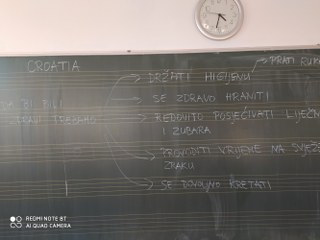 CROATIA
DRŽATI HIGIJENU
PRATI RUKE
SE ZDRAVO HRANITI
DA BI BILI
REDOVITO POSJEĆIVATI LIJEČN
I ZUBARA
PROVODITI VRIJEME NA SVJEŽ
ZRAKU
SE DOVOLJNO KRETATI
REDMI NOTE 8T
AI QUAD CAMERA